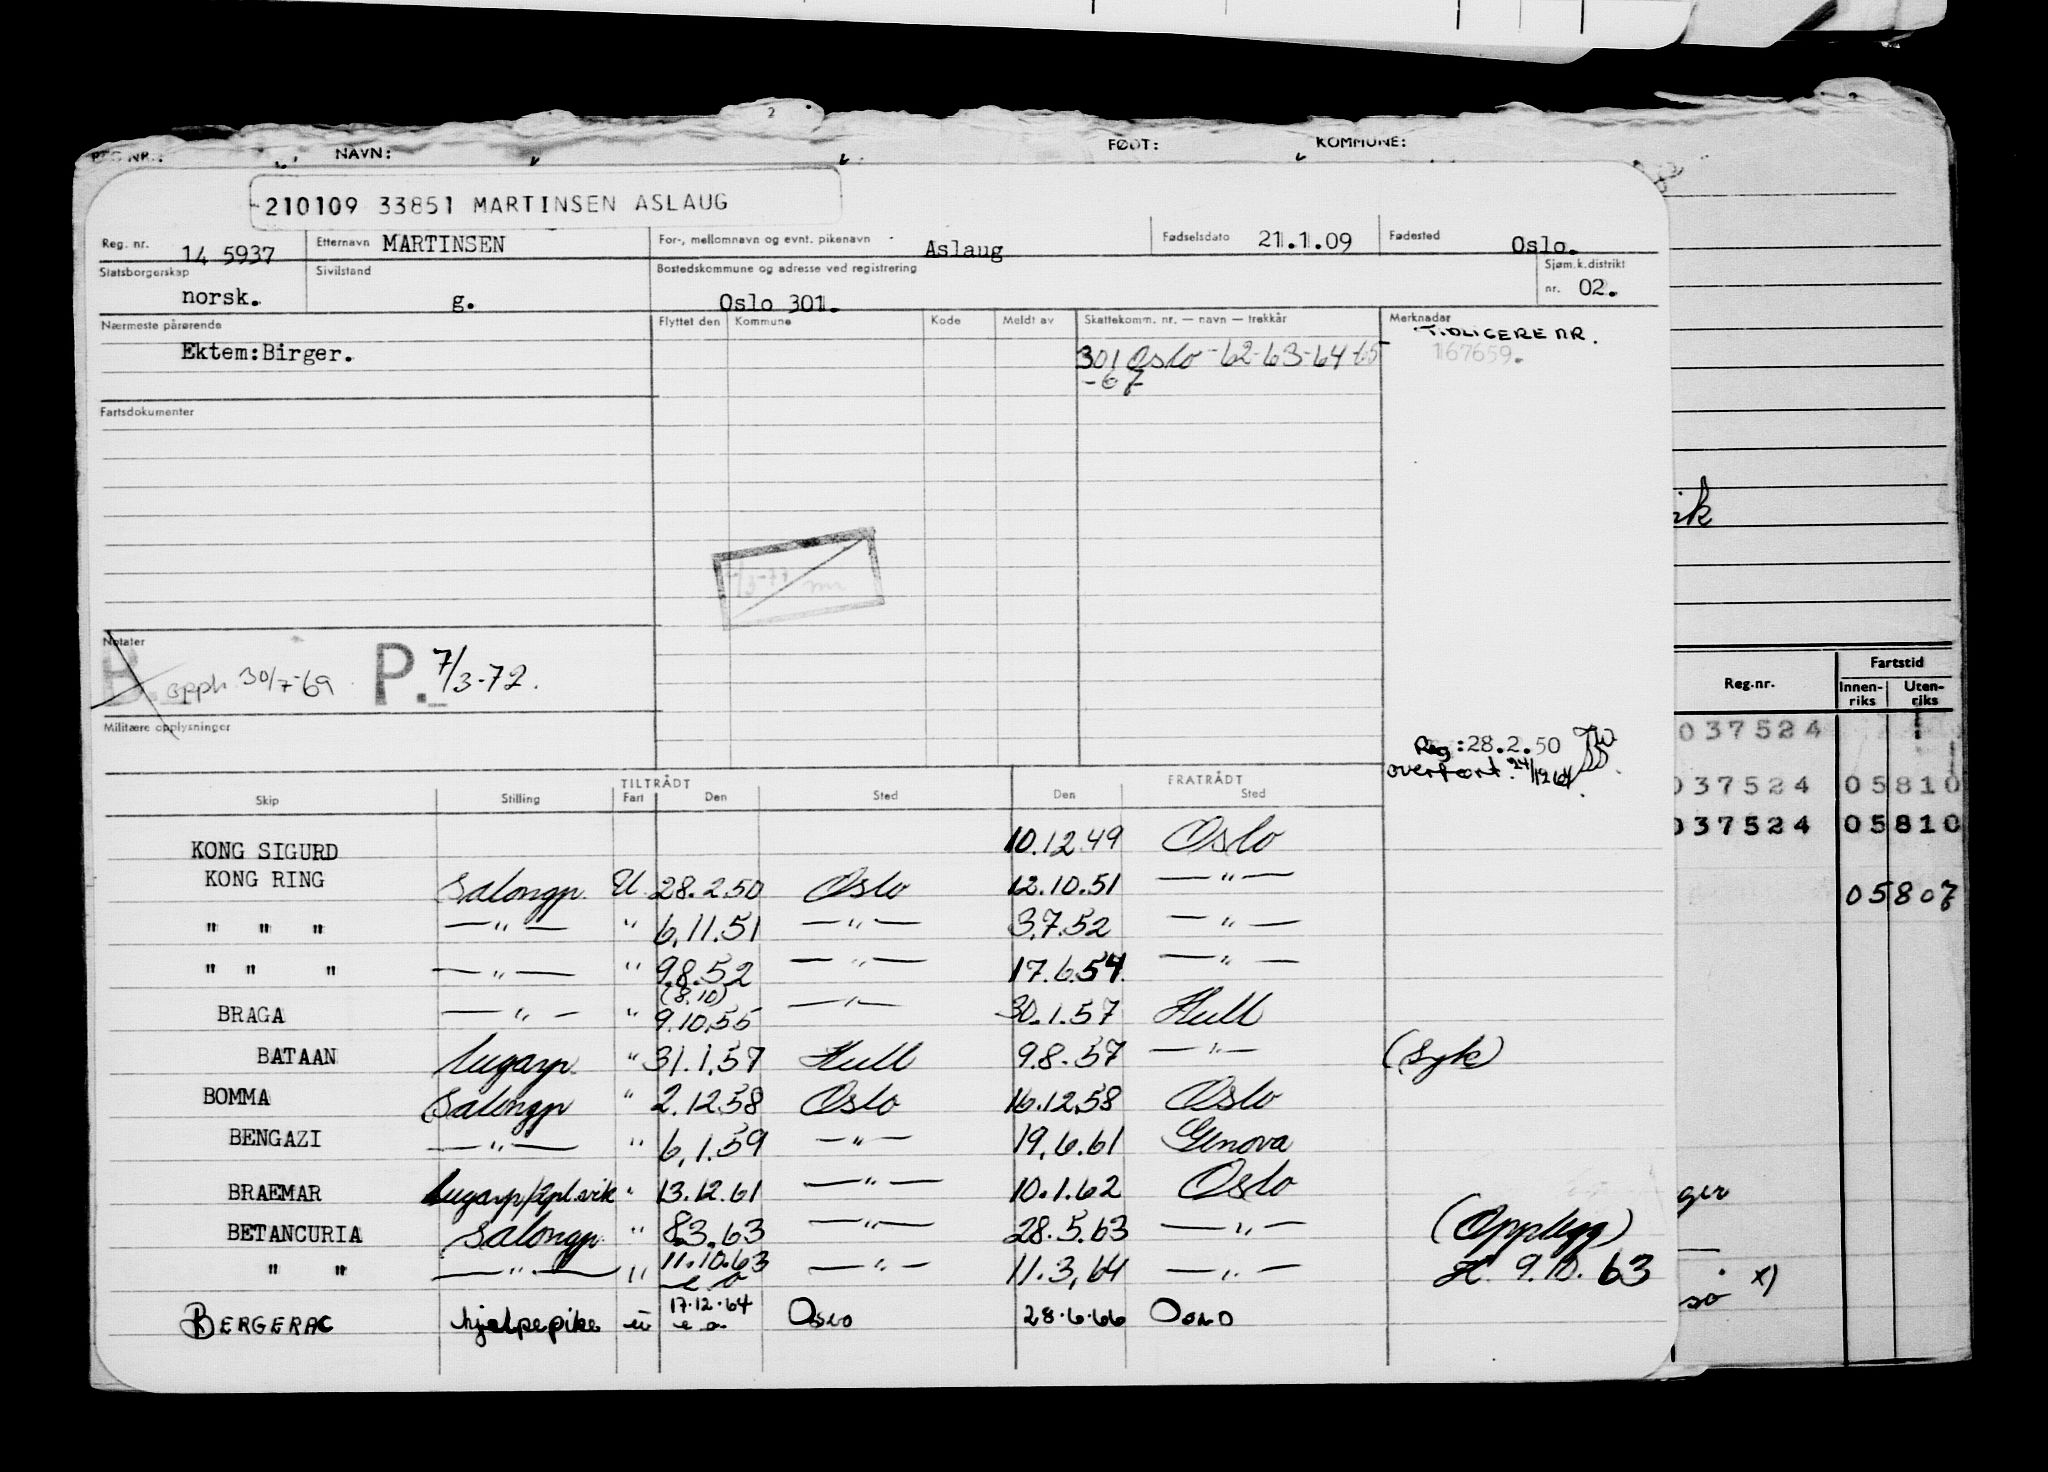 2
REG. NR.: NAVN: FØDT: KOMMUNE:
210109 33851 MARTINSEN ASLAUG
Reg. nr. 14 5937 Etternavn MARTINSEN For-, mellomnavn og evnt. pikenavn Aslaug Fødselsdato 21.1.09 Fødested Oslo.
Statsborgerskap norsk. Sivilstand g. Bostedskommune og adresse ved registrering Oslo 301. Sjøm.k.distrikt nr. 02.
Nærmeste pårørende Flyttet den Kommune Kode Meldt av Skattekomm. nr. — navn — trekkår Merknader
TIDLIGERE NR.
Ektem: Birger. 301 Oslo -62-63-64-65 167659.
-67
Fartsdokumenter
ik
Notater
B. opph 30/7-69 P. 7/3-72.
Militære opplysninger
Reg.nr. Fartstid
Innen-riks Uten-riks
037524
Reg: 28.2.50
overført 24/1264
037524 05810
037524 05810
05807
TILTRÅDT FRATRÅDT
Skip Stilling Fart Den Sted Den Sted
KONG SIGURD 10.12.49 Oslo
KONG RING Salongp. U. 28.2.50 Oslo 12.10.51 —"—
" " " —"— " 6.11.51 —"— 3.7.52 —"—
" " " —"— " 9.8.52 —"— 17.6.54 —"—
(8.10)
BRAGA —"— " 9.10.55 —"— 30.1.57 Hull
BATAAN lugarp. " 31.1.57 Hull 9.8.57 —"— (syk)
BOMMA Salongp " 2.12.58 Oslo 16.12.58 Oslo
BENGAZI —"— " 6.1.59 —"— 19.6.61 Genova
BRAEMAR lugarp/spl.vik " 13.12.61 —"— 10.1.62 Oslo
ger
BETANCURIA Salongp. " 8.3.63 —"— 28.5.63 —"— (Opplegg)
" " —"— " 11.10.63 —"— 11.3.64 —"— 9.10.63
x)
BERGERAC hjelpepike u 17.12.64 Oslo 28.6.66 Oslo